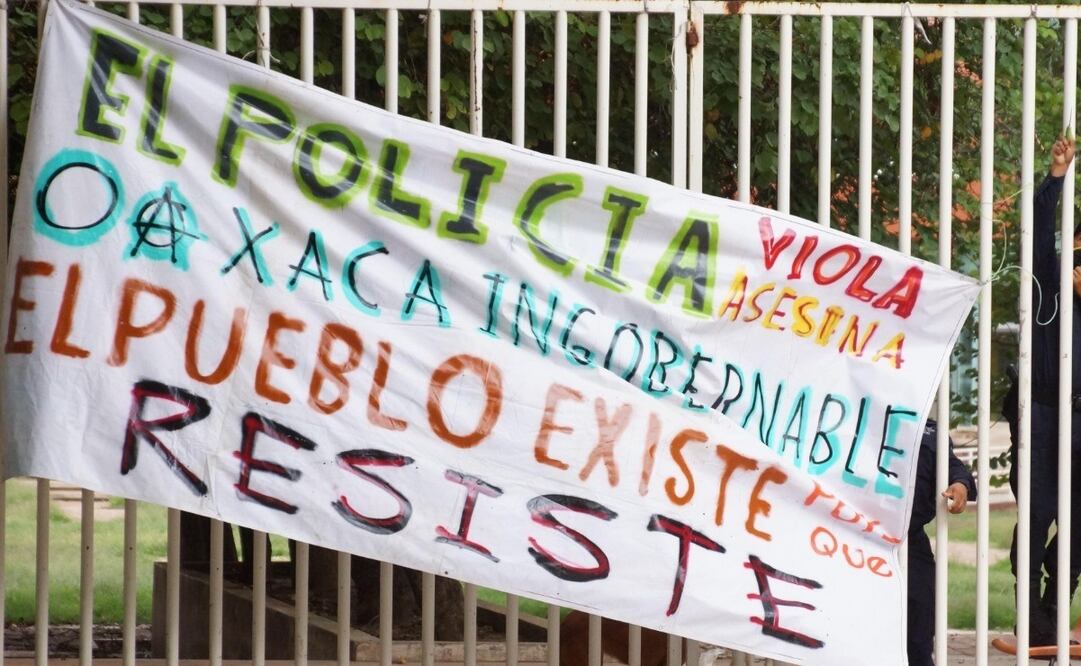 EL POLICIA VIOLA
ASESINA
OAXACA INGOBERNABLE
EL PUEBLO EXISTE POR
QUE
RESISTE